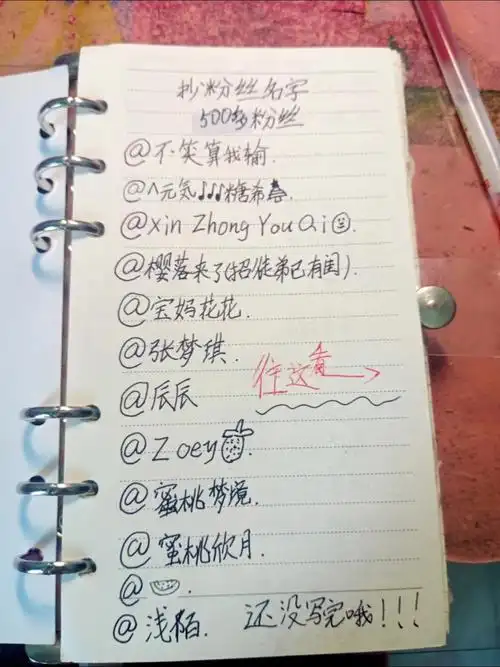 抄粉丝名字
500多粉丝
@不笑算我输.
@^元気♪♩♩糖希.
@Xin Zhong You Qi.
@樱落来了(招徒弟已有闺).
@宝妈花花.
@张梦琪.
往这看
@辰辰
@Zoey.
@蜜桃梦境.
@蜜桃欣月.
@🍉.
@浅栢. 还没写完哦!!!